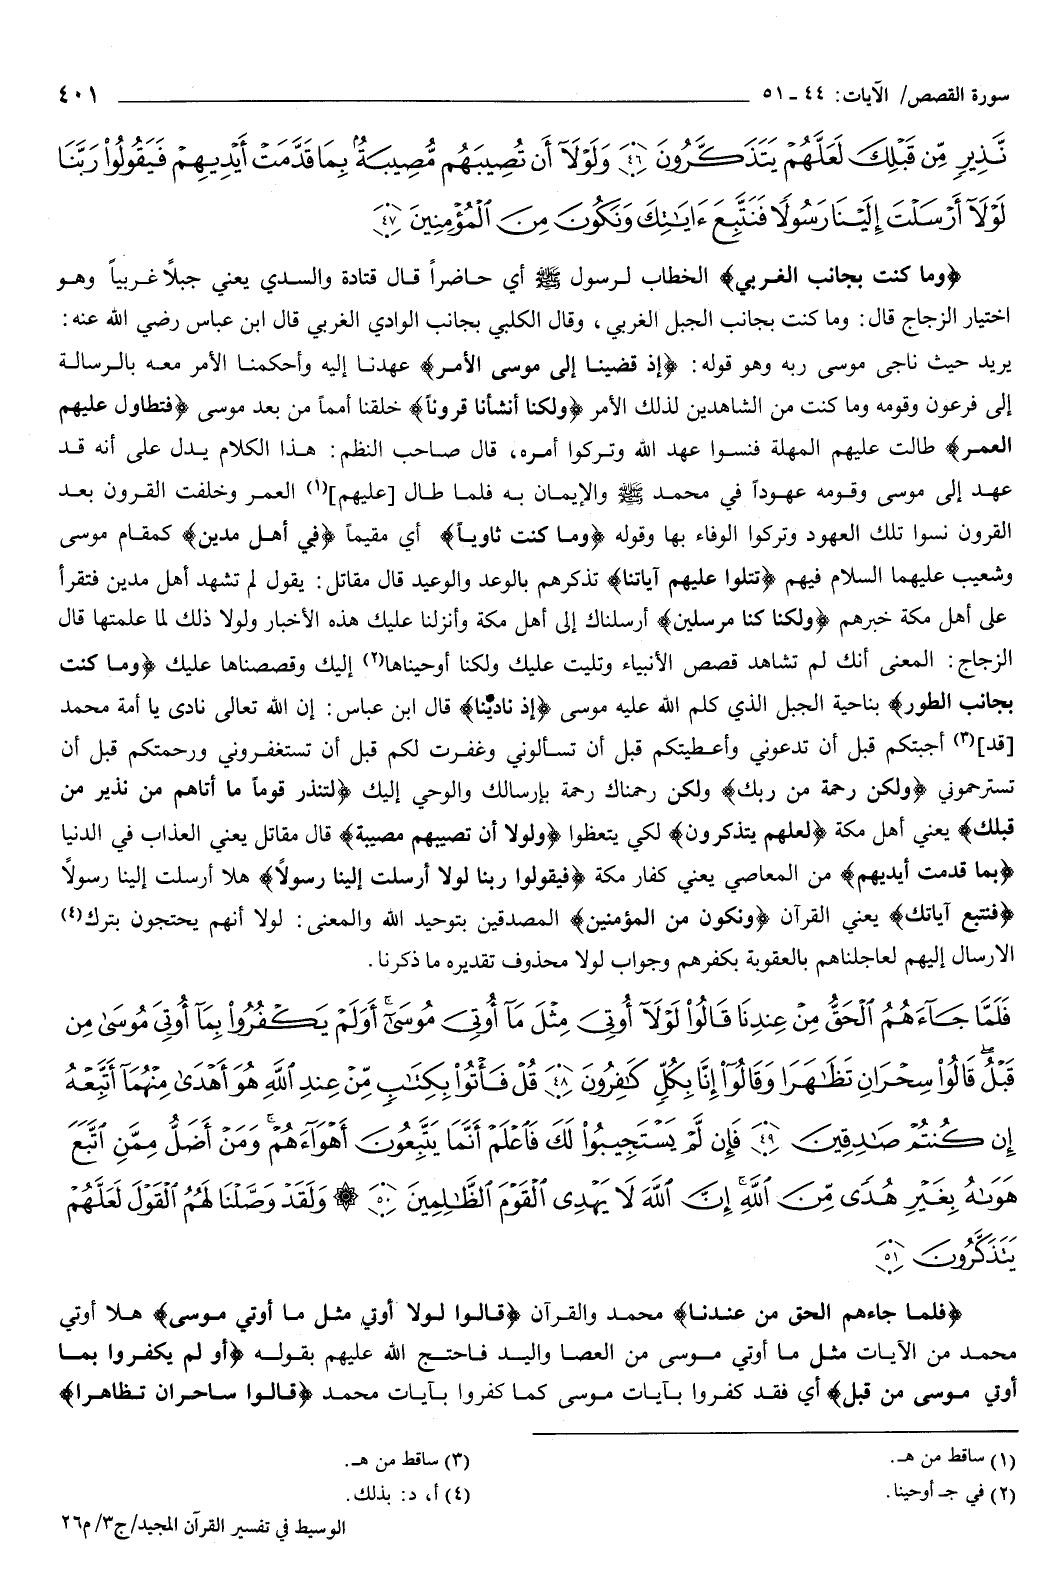 سورة القصص/ الآيات: ٤٤ ـ ٥١ ٤٠١
نَّذِيرٍ مِّن قَبْلِكَ لَعَلَّهُمْ يَتَذَكَّرُونَ ﴿٤٦﴾ وَلَوْلَآ أَن تُصِيبَهُم مُّصِيبَةٌۢ بِمَا قَدَّمَتْ أَيْدِيهِمْ فَيَقُولُوا۟ رَبَّنَا
لَوْلَآ أَرْسَلْتَ إِلَيْنَا رَسُولًا فَنَتَّبِعَ ءَايَٰتِكَ وَنَكُونَ مِنَ ٱلْمُؤْمِنِينَ ﴿٤٧﴾
﴿وما كنت بجانب الغربي﴾ الخطاب لرسول ﷺ أي حاضراً قال قتادة والسدي يعني جبلاً غربياً وهو
اختيار الزجاج قال: وما كنت بجانب الجبل الغربي، وقال الكلبي بجانب الوادي الغربي قال ابن عباس رضي الله عنه:
يريد حيث ناجى موسى ربه وهو قوله: ﴿إذ قضينا إلى موسى الأمر﴾ عهدنا إليه وأحكمنا الأمر معه بالرسالة
إلى فرعون وقومه وما كنت من الشاهدين لذلك الأمر ﴿ولكنا أنشأنا قروناً﴾ خلقنا أمماً من بعد موسى ﴿فتطاول عليهم
العمر﴾ طالت عليهم المهلة فنسوا عهد الله وتركوا أمره، قال صاحب النظم: هذا الكلام يدل على أنه قد
عهد إلى موسى وقومه عهوداً في محمد ﷺ والإيمان به فلما طال [عليهم](١) العمر وخلفت القرون بعد
القرون نسوا تلك العهود وتركوا الوفاء بها وقوله ﴿وما كنت ثاوياً﴾ أي مقيماً ﴿في أهل مدين﴾ كمقام موسى
وشعيب عليهما السلام فيهم ﴿تتلوا عليهم آياتنا﴾ تذكرهم بالوعد والوعيد قال مقاتل: يقول لم تشهد أهل مدين فتقرأ
على أهل مكة خبرهم ﴿ولكنا كنا مرسلين﴾ أرسلناك إلى أهل مكة وأنزلنا عليك هذه الأخبار ولولا ذلك لما علمتها قال
الزجاج: المعنى أنك لم تشاهد قصص الأنبياء وتليت عليك ولكنا أوحيناها(٢) إليك وقصصناها عليك ﴿وما كنت
بجانب الطور﴾ بناحية الجبل الذي كلم الله عليه موسى ﴿إذ نادينا﴾ قال ابن عباس: إن الله تعالى نادى يا أمة محمد
[قد](٣) أجبتكم قبل أن تدعوني وأعطيتكم قبل أن تسألوني وغفرت لكم قبل أن تستغفروني ورحمتكم قبل أن
تسترحموني ﴿ولكن رحمة من ربك﴾ ولكن رحمناك رحمة بإرسالك والوحي إليك ﴿لتنذر قوماً ما أتاهم من نذير من
قبلك﴾ يعني أهل مكة ﴿لعلهم يتذكرون﴾ لكي يتعظوا ﴿ولولا أن تصيبهم مصيبة﴾ قال مقاتل يعني العذاب في الدنيا
﴿بما قدمت أيديهم﴾ من المعاصي يعني كفار مكة ﴿فيقولوا ربنا لولا أرسلت إلينا رسولاً﴾ هلا أرسلت إلينا رسولاً
﴿فنتبع آياتك﴾ يعني القرآن ﴿ونكون من المؤمنين﴾ المصدقين بتوحيد الله والمعنى: لولا أنهم يحتجون بترك(٤)
الارسال إليهم لعاجلناهم بالعقوبة بكفرهم وجواب لولا محذوف تقديره ما ذكرنا.
فَلَمَّا جَآءَهُمُ ٱلْحَقُّ مِنْ عِندِنَا قَالُوا۟ لَوْلَآ أُوتِىَ مِثْلَ مَآ أُوتِىَ مُوسَىٰٓ ۚ أَوَلَمْ يَكْفُرُوا۟ بِمَآ أُوتِىَ مُوسَىٰ مِن
قَبْلُ ۖ قَالُوا۟ سِحْرَانِ تَظَٰهَرَا وَقَالُوٓا۟ إِنَّا بِكُلٍّ كَٰفِرُونَ ﴿٤٨﴾ قُلْ فَأْتُوا۟ بِكِتَٰبٍ مِّنْ عِندِ ٱللَّهِ هُوَ أَهْدَىٰ مِنْهُمَآ أَتَّبِعْهُ
إِن كُنتُمْ صَٰدِقِينَ ﴿٤٩﴾ فَإِن لَّمْ يَسْتَجِيبُوا۟ لَكَ فَٱعْلَمْ أَنَّمَا يَتَّبِعُونَ أَهْوَآءَهُمْ ۚ وَمَنْ أَضَلُّ مِمَّنِ ٱتَّبَعَ
هَوَىٰهُ بِغَيْرِ هُدًى مِّنَ ٱللَّهِ ۚ إِنَّ ٱللَّهَ لَا يَهْدِى ٱلْقَوْمَ ٱلظَّٰلِمِينَ ﴿٥٠﴾ ۞ وَلَقَدْ وَصَّلْنَا لَهُمُ ٱلْقَوْلَ لَعَلَّهُمْ
يَتَذَكَّرُونَ ﴿٥١﴾
﴿فلما جاءهم الحق من عندنا﴾ محمد والقرآن ﴿قالوا لولا أوتي مثل ما أوتي موسى﴾ هلا أوتي
محمد من الآيات مثل ما أوتي موسى من العصا واليد فاحتج الله عليهم بقوله ﴿أو لم يكفروا بما
أوتي موسى من قبل﴾ أي فقد كفروا بآيات موسى كما كفروا بآيات محمد ﴿قالوا ساحران تظاهرا﴾
(١) ساقط من هـ.
(٢) في جـ أوحينا.
(٣) ساقط من هـ.
(٤) أ، د: بذلك.
الوسيط في تفسير القرآن المجيد/ ج٣/ م٢٦